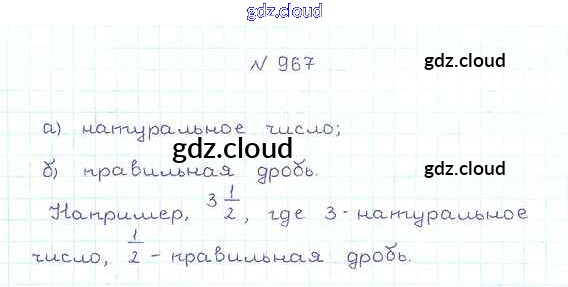 gdz.cloud
№ 967
gdz.cloud
а) натуральное число;
gdz.cloud
б) правильная дробь.
gdz.cloud
Например, 3 1/2, где 3 - натуральное
число, 1/2 - правильная дробь.